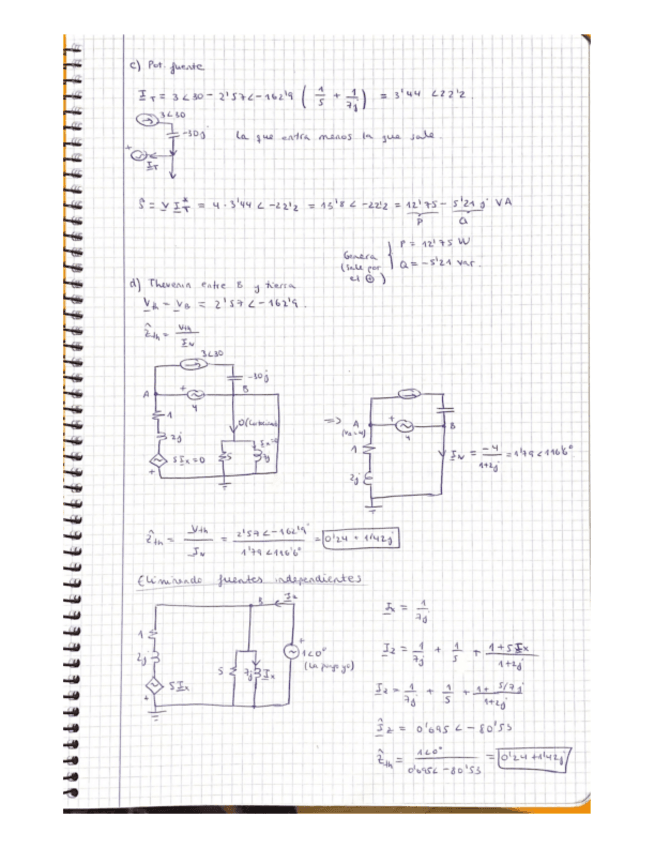 c) Pot. fuente
I_T = 3∠30 - 2'57∠-162'9 ( 1/5 + 1/7j ) = 3'44 ∠22'2
3∠30
-30j
La que entra menos la que sale.
+
I_T
S = V I_T* = 4 · 3'44 ∠-22'2 = 13'8 ∠-22'2 = 12'75 - 5'21 j VA
P
Q
Genera
(Sale por
el ⊕)
P = 12'75 W
Q = -5'21 var.
d) Thevenin entre B y tierra
V_th = V_B = 2'57∠-162'9.
Ẑ_th = V_th / I_N
3∠30
-30j
A
+
4
B
1
2j
5 I_x=0
+
5
⇒
A
+
4
B
1
2j
I_N = -4 / 1+2j = 1'79 ∠116'6°
Ẑ_th = V_th / I_N = 2'57∠-162'9 / 1'79 ∠116'6° = 0'24 + 1'42j
Eliminando fuentes independientes
B
I_z
1
2j
5 I_x
+
5
7j
I_x
+
1∠0°
(La pongo yo)
I_x = 1 / 7j
I_z = 1/7j + 1/5 + 1+5 I_x / 1+2j
I_z = 1/7j + 1/5 + 1+ 5/7j / 1+2j
I_z = 0'695 ∠-80'53
Ẑ_th = 1∠0° / 0'695∠-80'53 = 0'24 +1'42j